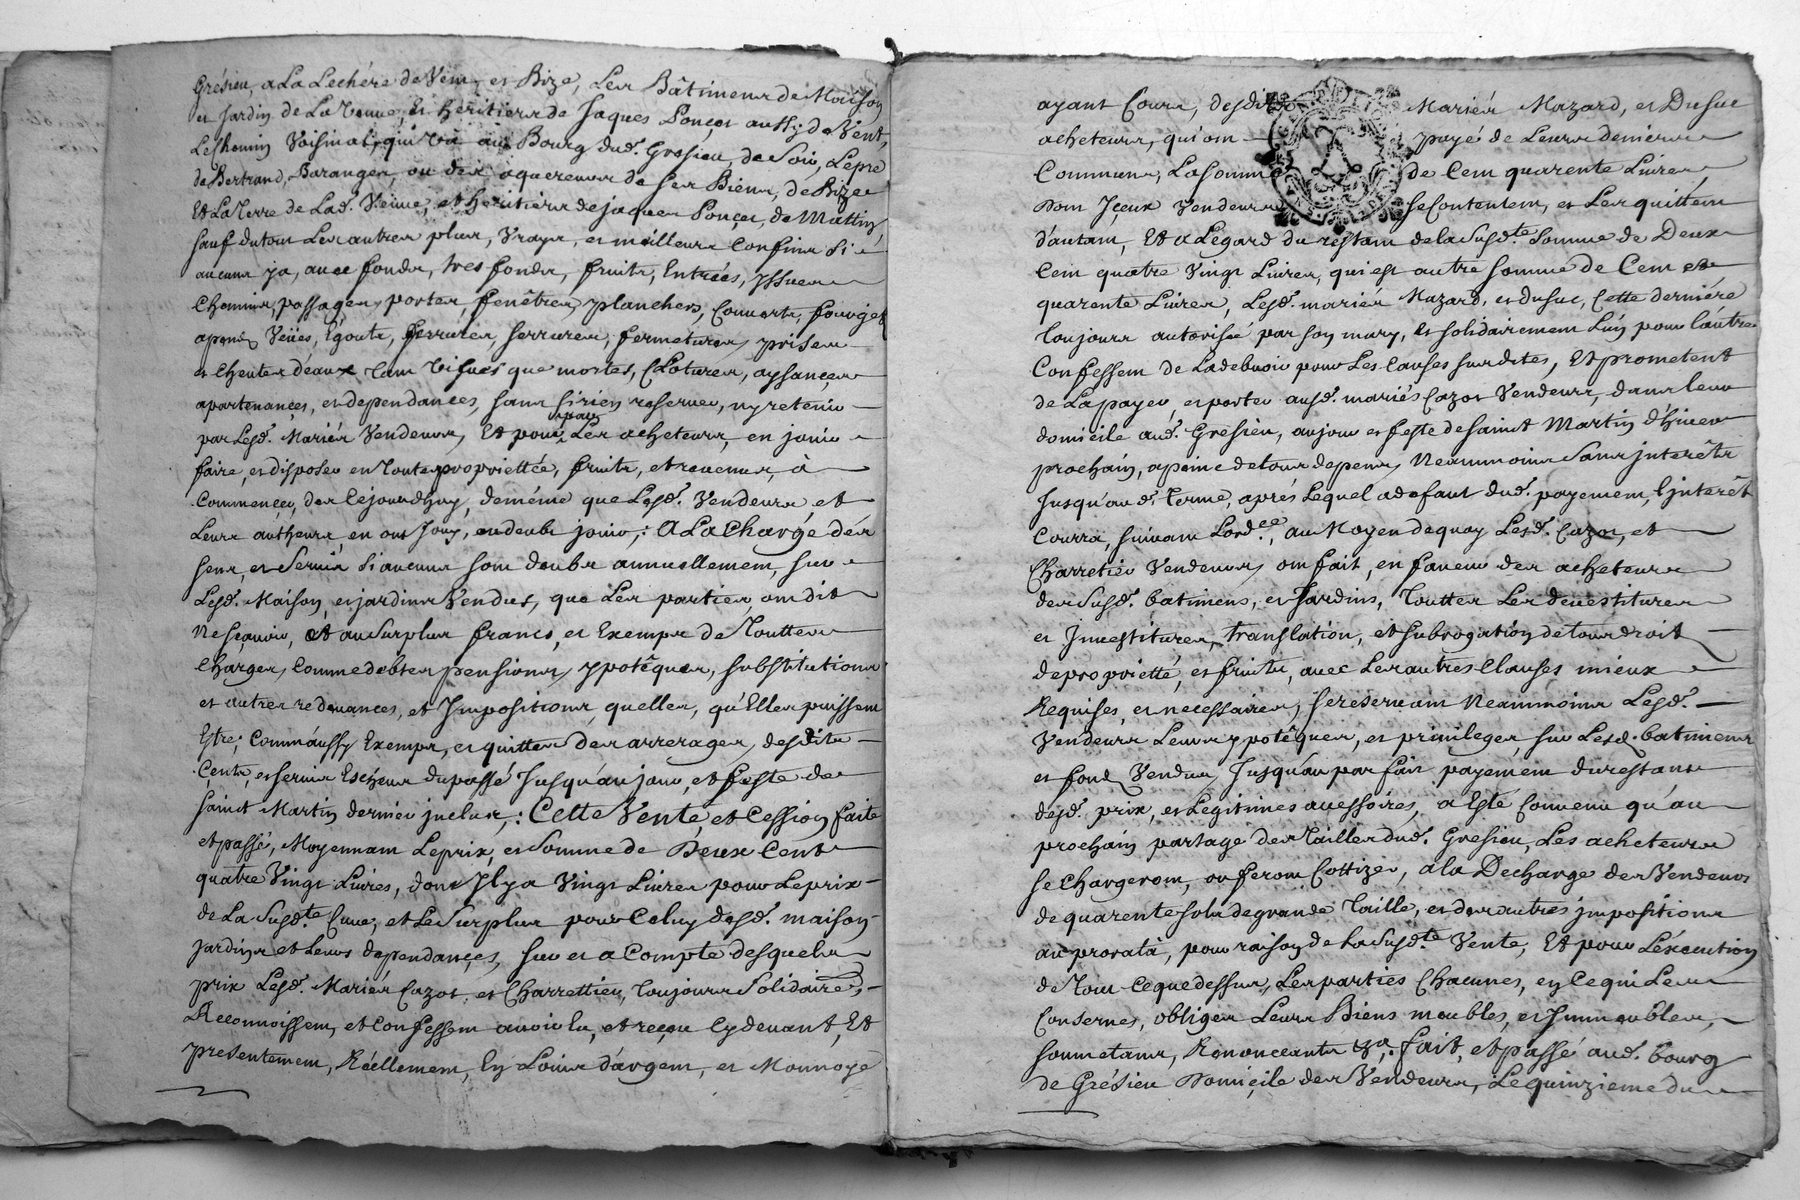 Grésieu, a La Lechére de Vent, et Bize, Les Bâtimens de Maison
et Jardin de La Veuve, et heritiers de Jaques Ponçet aussy de Vent,
Le Chemin Voisinal, qui va au Bourg dud. Gresieu, de Soir, Le pré
de Bertrand, Baranger, ou des aquereurs de ses Biens, de Bize
Et La Terre de Lad. Veuve, et heritiers de jaques Ponçet, de Mattin,
sauf du tout Les autres plus, Vrays, et meilleurs Confins si
aucuns ya, avec fonds, tres fonds, fruits, Entrées, Jssues
Chemins, passages, portes, fenêtres, planchers, Couverts,
Veües, Egouts, ferrures, serrures, fermetures, prises
et Cheutes d'eaux tant vifves que mortes, Clotures, aysances
apartenançes, et dependançes, sans si rien reserver, ny retenir
par Lesd. Mariés Vendeurs, Et pour, par Les acheteurs, en jouir
faire, et disposer en Toute propriettée, fruits, et revenus, à
Commencer, des Cejourdhuy, demême que Lesd. Vendeurs, et
Leurs autheurs, en ont Jouy, ou deubt jouir,: A La Charge des
sens, et Servis si aucuns sont deubs annuellement, sur
Lesd. Maison, et jardins Vendus, que Les parties, ont dit
Ne sçavoir, et au Surplus francs, et Exempts de Touttes
Charges, Comme debtes pensions, ypotêques, substitutions
et autres redevances, et Jmpositions, quelles, qu'Elles puissent
Estre; Comm'aussy Exempts, et quittes des arrerages, desdits
Cents, et servis Escheus du passé Jusqu'au jour, et feste de
saint Martin dernier jnclus,: Cette Vente, et Cession faite
et passé, Moyennant Le prix, et Somme de Deux Cent
quatre Vingt Livres, dont Jl ya Vingt Livres pour Le prix
de La Susd.te Cuve, et Le Surplus pour Celuy desd. maison
jardins et Leurs dependançes, sur et a Compte desquels
prix Lesd. Mariés Cazot, et Charrettier, Toujours Solidaires,
Reconnoissent, et Confessent avoir eu, et reçeu Cy devant, Et
presentement, Réellement, En Loüis d'argent, et Monnoye
ayant Cours, desdits Mariés Mazard, et Dusuc
acheteurs, qui ont payé de Leurs deniers
Communs, La somme de Cent quarente Livres
Dont Jçeux Vendeurs se Contentent, et Les quittent
d'autant, Et a L'egard du restant de la susd.te Somme de Deux
Cent quatre Vingt Livres, qui est autre somme de Cent et
quarente Livres, Lesd. mariés Mazard, et dusuc, Cette derniére
Toujours autorisée par son mary, et solidairement L'un pour l'autre
Confessent de La debvoir pour Les Causes surdites, Et prometent
de La payer, et porter ausd. mariés Cazot Vendeurs, dans leur
domicile aud. Gresieu, au jour et feste de saint Martin d'hiver
prochain, a peine de tous depens, Neanmoins Sans jnterêts
Jusqu'aud. Terme, aprés Lequel a defaut dud. payement, l'jnterêt
Courra, suivant Lord.ce, au Moyen de quoy Lesd. Cazot, et
Charretier Vendeurs, ont fait, en faveur des acheteurs
des Susd. batimens, et Jardins, Touttes Les devestitures
et Jnvestitures, translation, et subrogation de tous droits
de propriétté, et fruits, avec Les autres Clauses mieux
Requises, et necessaires, se reservant Neanmoins Lesd.
Vendeurs Leurs ypotêques, et privileges, sur Lesd. batimens
et fond Vendus, Jusqu'au parfait payement du restant
desd. prix, et Legitimes accessoires, a Esté Convenu qu'au
prochain partage des Tailles dud. Gresieu, Les acheteurs
se Chargeront, ou feront Cottizer, a la Decharge des Vendeurs
de quarente sols de grande Taille, et des autres jmpositions
au prorata, pour raison de la susd.te Vente, Et pour L'execution
de Tout Ceque dessus, Les parties Chacunes, en Ce qui Leur
Consernes, obliges Leurs Biens meubles, et Jmmeubles,
soumetans, Renonceants &a. fait, et passé aud. bourg
de Grésieu Domiçile des Vendeurs, Le quinzieme du